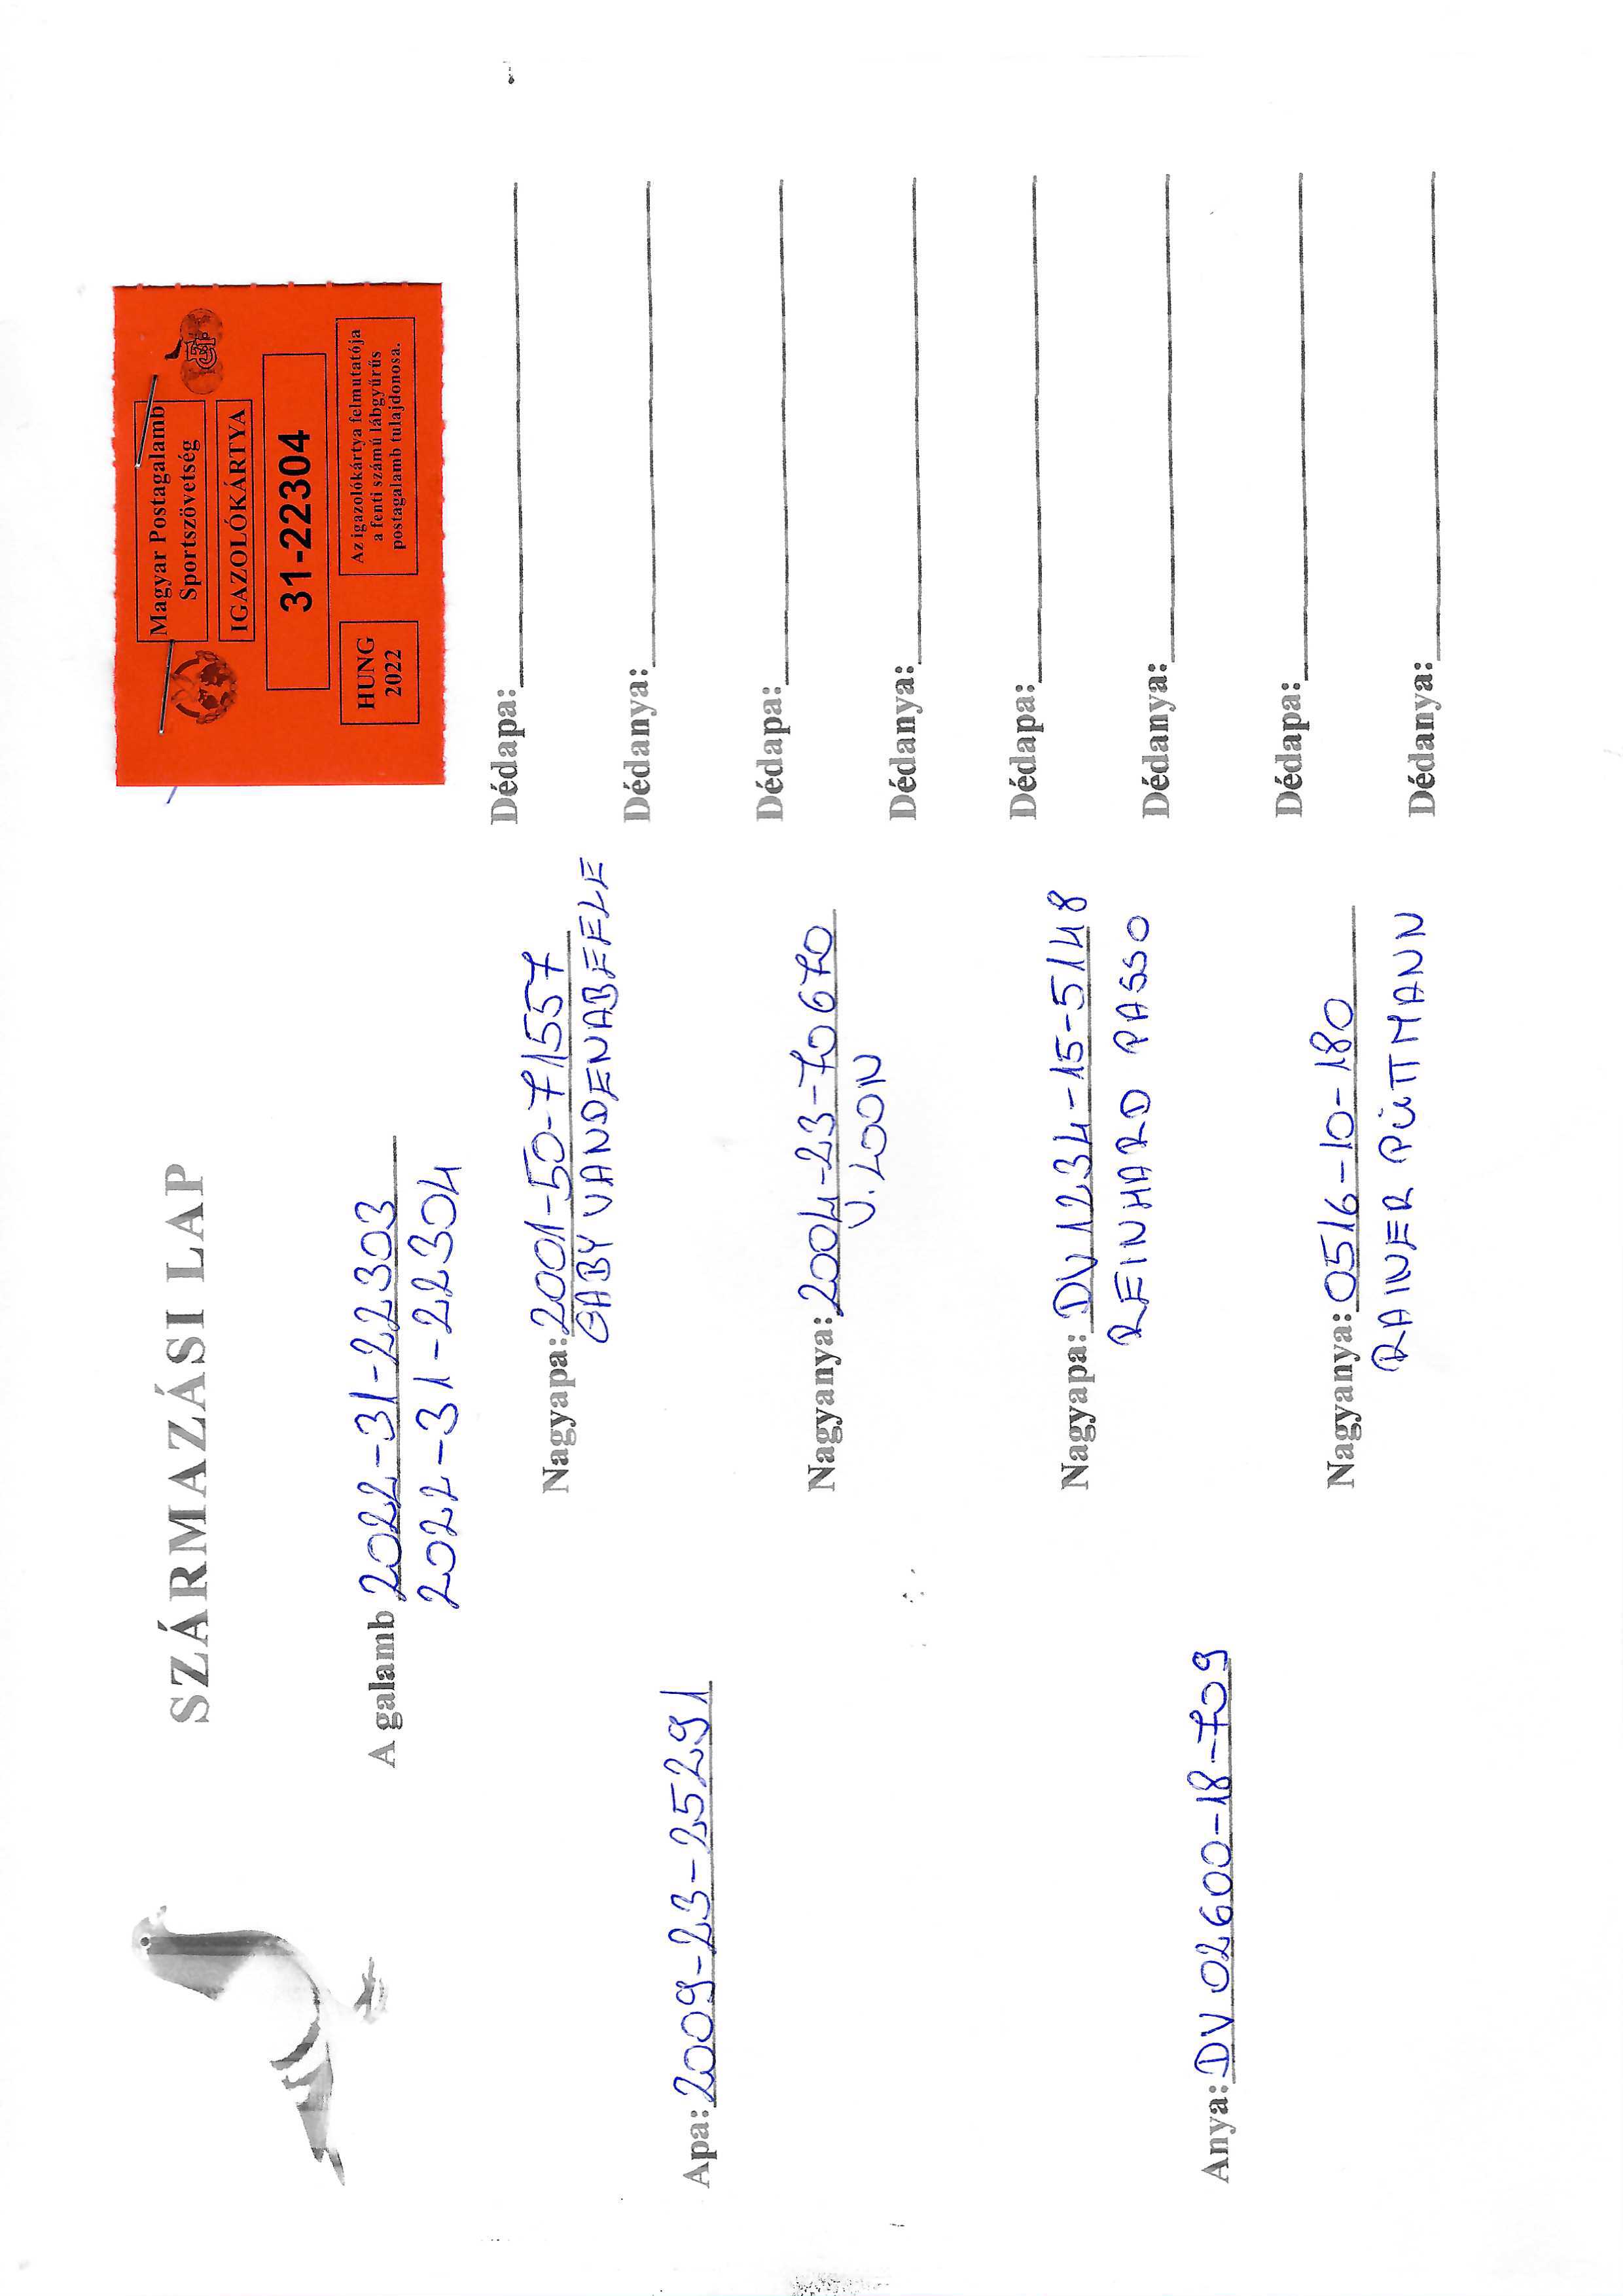 SZÁRMAZÁSI LAP
Magyar Postagalamb
Sportszövetség
IGAZOLÓKÁRTYA
31-22304
HUNG
2022
Az igazolókártya felmutatója
a fenti számú lábgyűrűs
postagalamb tulajdonosa.
A galamb 2022-31-22303
2022-31-22304
Apa: 2009-23-25291
Nagyapa: 2001-50-71557
GABY VANDENABEELE
Dédapa:
Dédanya:
Nagyanya: 2004-23-70670
V. LOON
Dédapa:
Dédanya:
Anya: DV 02600-18-709
Nagyapa: DV 1234-15-5148
REINHARD PASSO
Dédapa:
Dédanya:
Nagyanya: 0516-10-180
RAINER PÜTTMANN
Dédapa:
Dédanya: